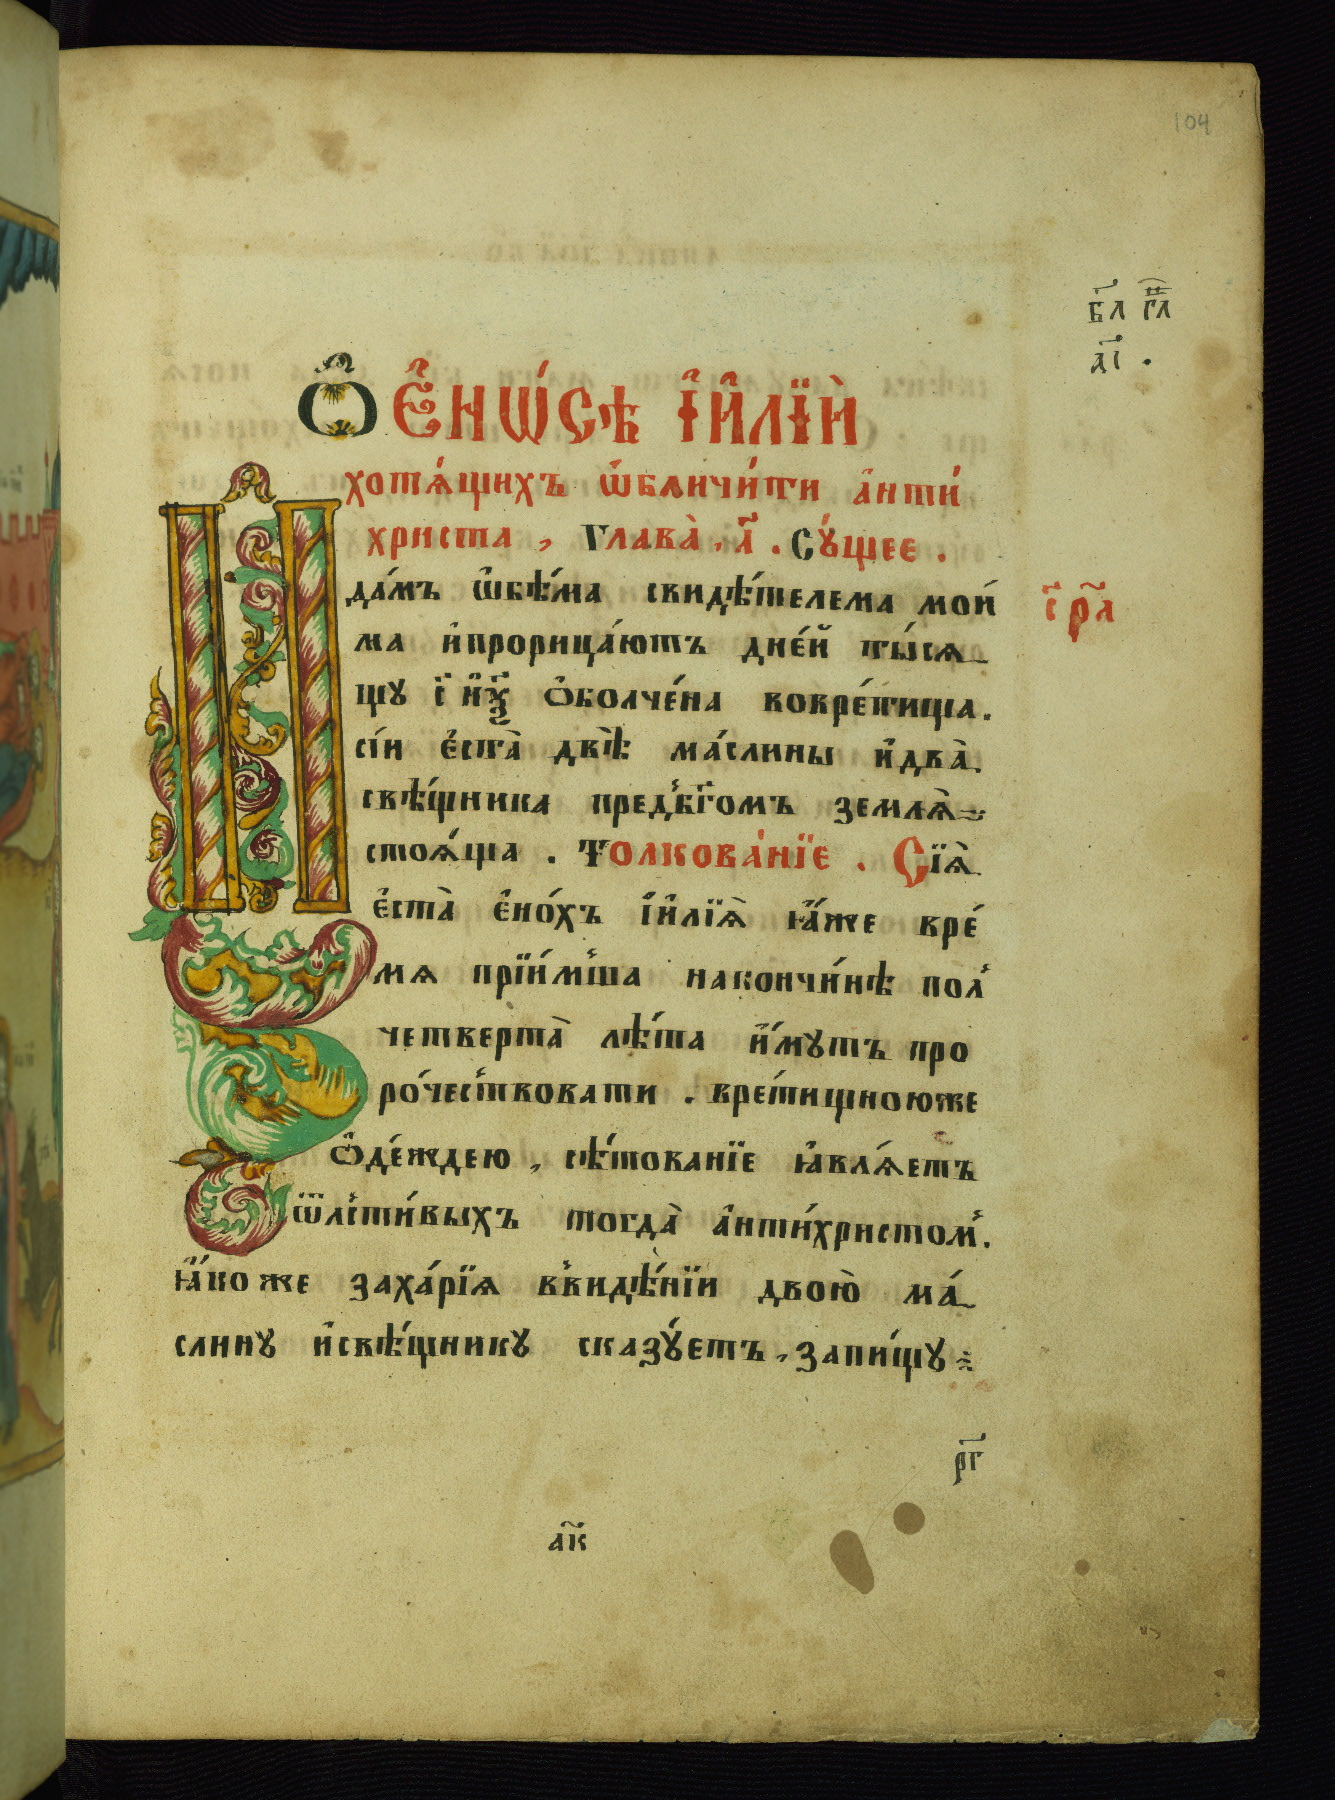 104
Ѻ҆ е҆нѡ́сѣ і҆ и҆лїи̇̀
хотѧ́щихъ ѡ҆бличи́ти а҆нти́
христа, Глава̀, л҃. Сꙋ́щее.
И да́мъ ѡ҆бѣ́ма свидѣ́телема мои́
ма и҆прорица́ютъ дне́й ты́сѧ
щꙋ с҃ и҆ѯ҃ ѻ҆болче́на вовре́тища.
сі́и є҆ста̀ двѣ̀ ма́слины и҆два̀
свѣ́щника пред̾бг҃омъ землѧ̀
стоѧ́ща. Толкова́нїе. Сїѧ̀
є҆ста̀ є҆но́хъ і҆ и҆лїѧ̀ ꙗ҆́же вре́
мѧ прїи́мша накончи́нѣ пол̾
четверта̀ лѣ́та и҆́мꙋтъ про
ро́чествовати. вре́тищноюже
ѻ҆де́ждею, сѣ́тованїе ꙗ҆влѧ́етъ
ѿлсти́выхъ тогда̀ а҆нти́христом̾.
ꙗ҆́коже заха́рїѧ в̾видѣ́нїи двою̀ ма́
слинꙋ и҆свѣ́щникꙋ сказꙋ́етъ, запи́щꙋ
бл҃ гл҃
аі҃.
с҃ рл҃
рг҃
ак҃